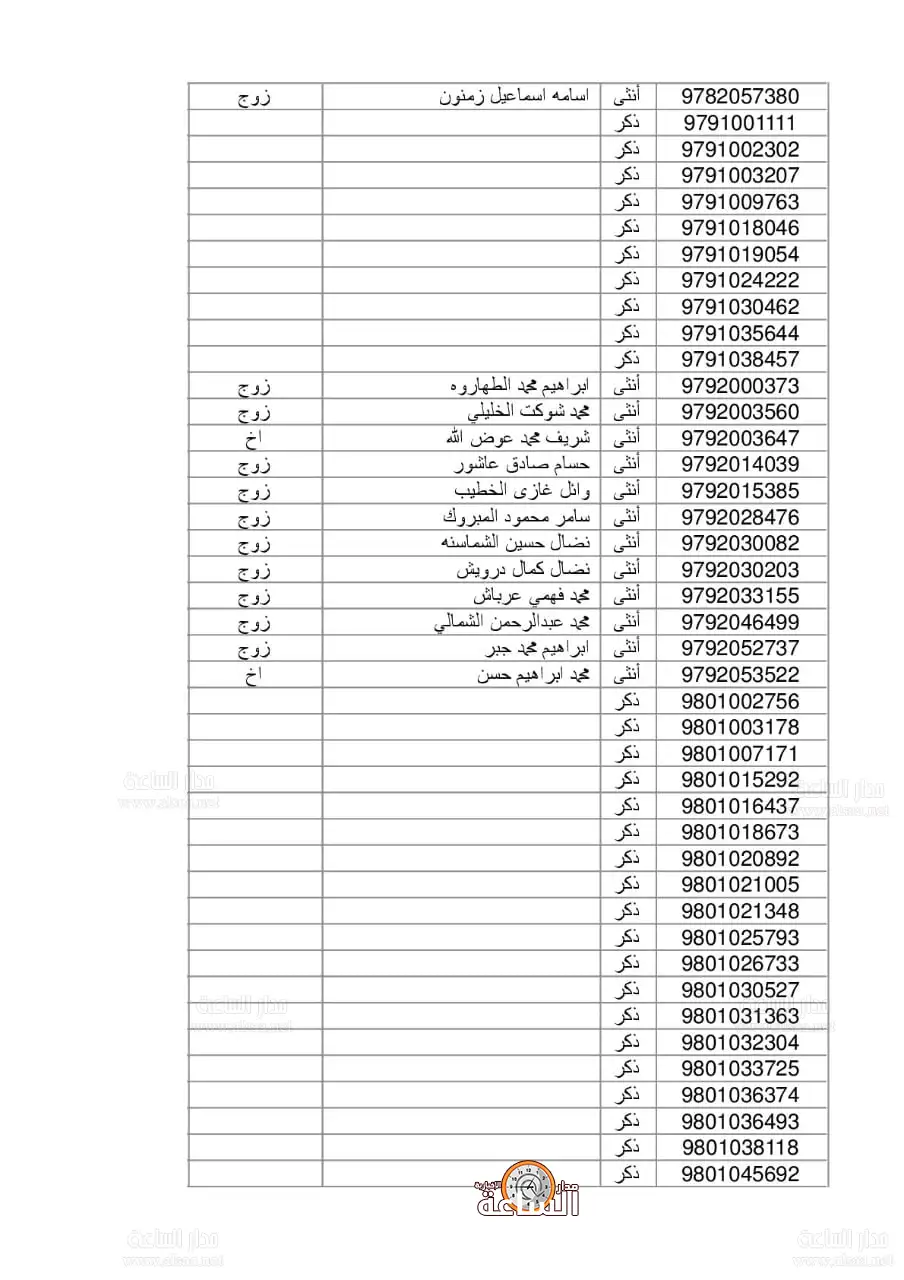 9782057380 أنثى اسامه اسماعيل زمنون زوج
9791001111 ذكر
9791002302 ذكر
9791003207 ذكر
9791009763 ذكر
9791018046 ذكر
9791019054 ذكر
9791024222 ذكر
9791030462 ذكر
9791035644 ذكر
9791038457 ذكر
9792000373 أنثى ابراهيم محمد الطهاروه زوج
9792003560 أنثى محمد شوكت الخليلي زوج
9792003647 أنثى شريف محمد عوض الله اخ
9792014039 أنثى حسام صادق عاشور زوج
9792015385 أنثى وائل غازى الخطيب زوج
9792028476 أنثى سامر محمود المبروك زوج
9792030082 أنثى نضال حسين الشماسنه زوج
9792030203 أنثى نضال كمال درويش زوج
9792033155 أنثى محمد فهمي عرباش زوج
9792046499 أنثى محمد عبدالرحمن الشمالي زوج
9792052737 أنثى ابراهيم محمد جبر زوج
9792053522 أنثى محمد ابراهيم حسن اخ
9801002756 ذكر
9801003178 ذكر
9801007171 ذكر
9801015292 ذكر
9801016437 ذكر
9801018673 ذكر
9801020892 ذكر
9801021005 ذكر
9801021348 ذكر
9801025793 ذكر
9801026733 ذكر
9801030527 ذكر
9801031363 ذكر
9801032304 ذكر
9801033725 ذكر
9801036374 ذكر
9801036493 ذكر
9801038118 ذكر
9801045692 ذكر
مدار الساعة الإخبارية
مدار الساعة
www.alsaa.net
مدار الساعة
www.alsaa.net
مدار الساعة
www.alsaa.net
مدار الساعة
www.alsaa.net
مدار الساعة
www.alsaa.net
مدار الساعة
www.alsaa.net